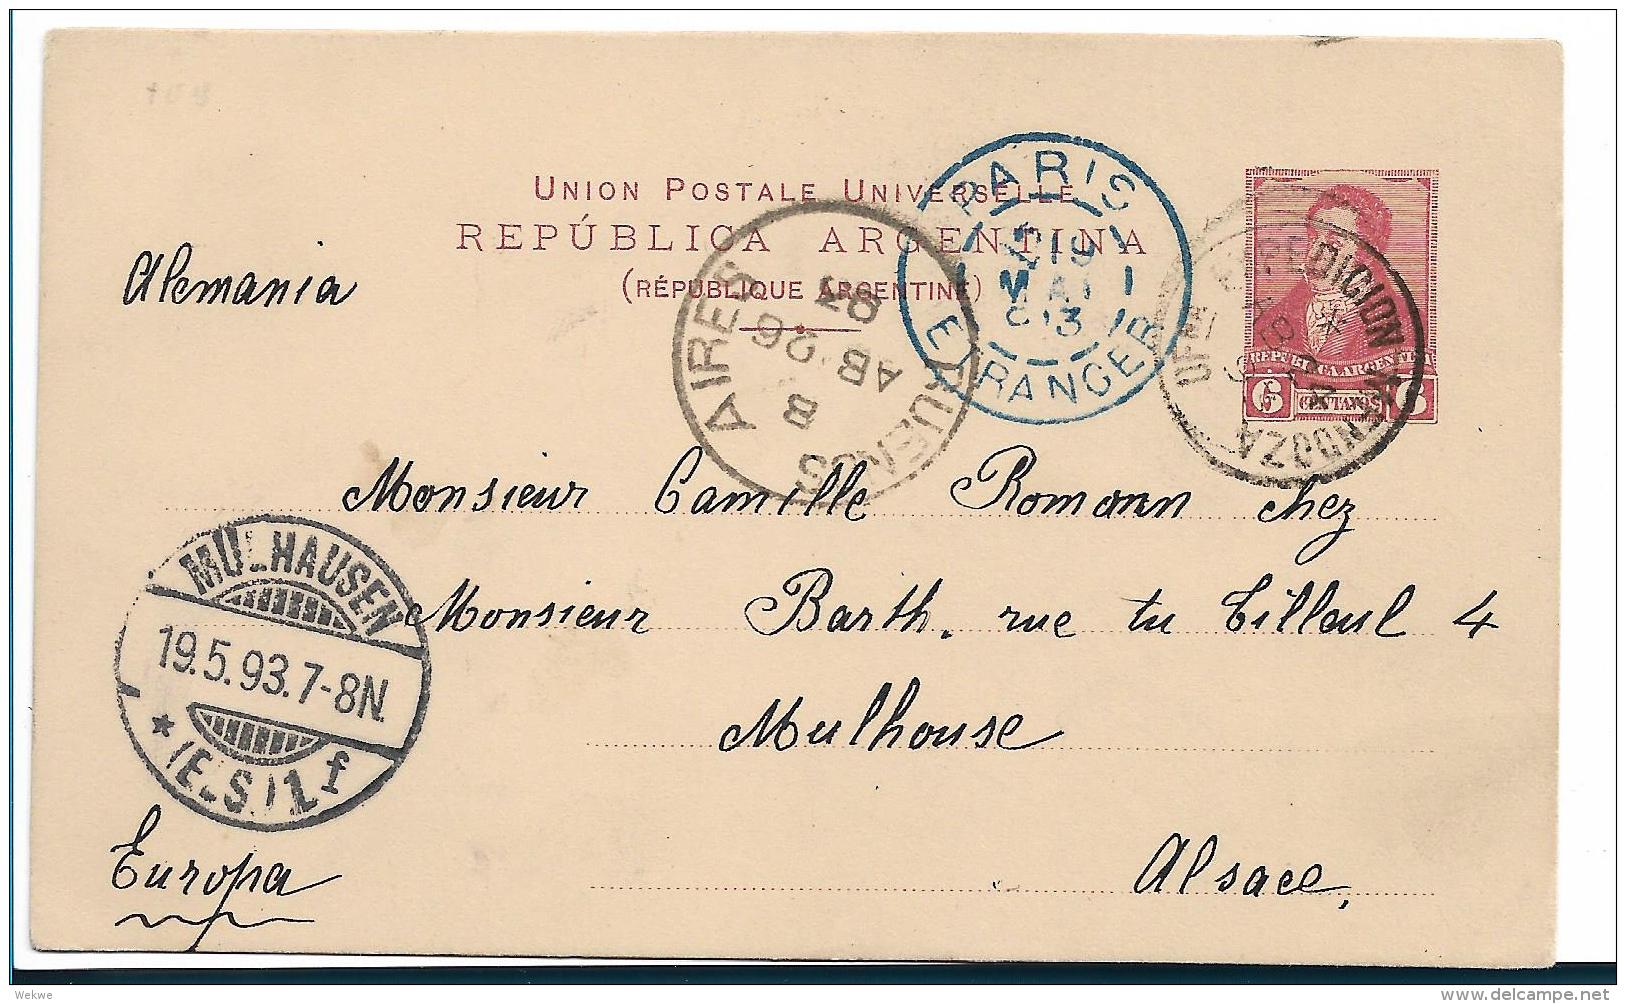 UNION POSTALE UNIVERSELLE
REPÚBLICA ARGENTINA
(RÉPUBLIQUE ARGENTINE)
PARIS
19
MAI
93
ETRANGER
BUENOS AIRES
AB 26
93
B
EXPEDICION MENDOZA
REPUBLICA ARGENTINA
6 CENTAVOS 6
Alemania
Monsieur Camille Romann chez
Monsieur Barth. rue tu Tilleul 4
Mulhouse
Alsace,
MULHAUSEN
19.5.93.7-8N.
* (ELS.) 1 f
Europa
Wekwe
delcampe.net